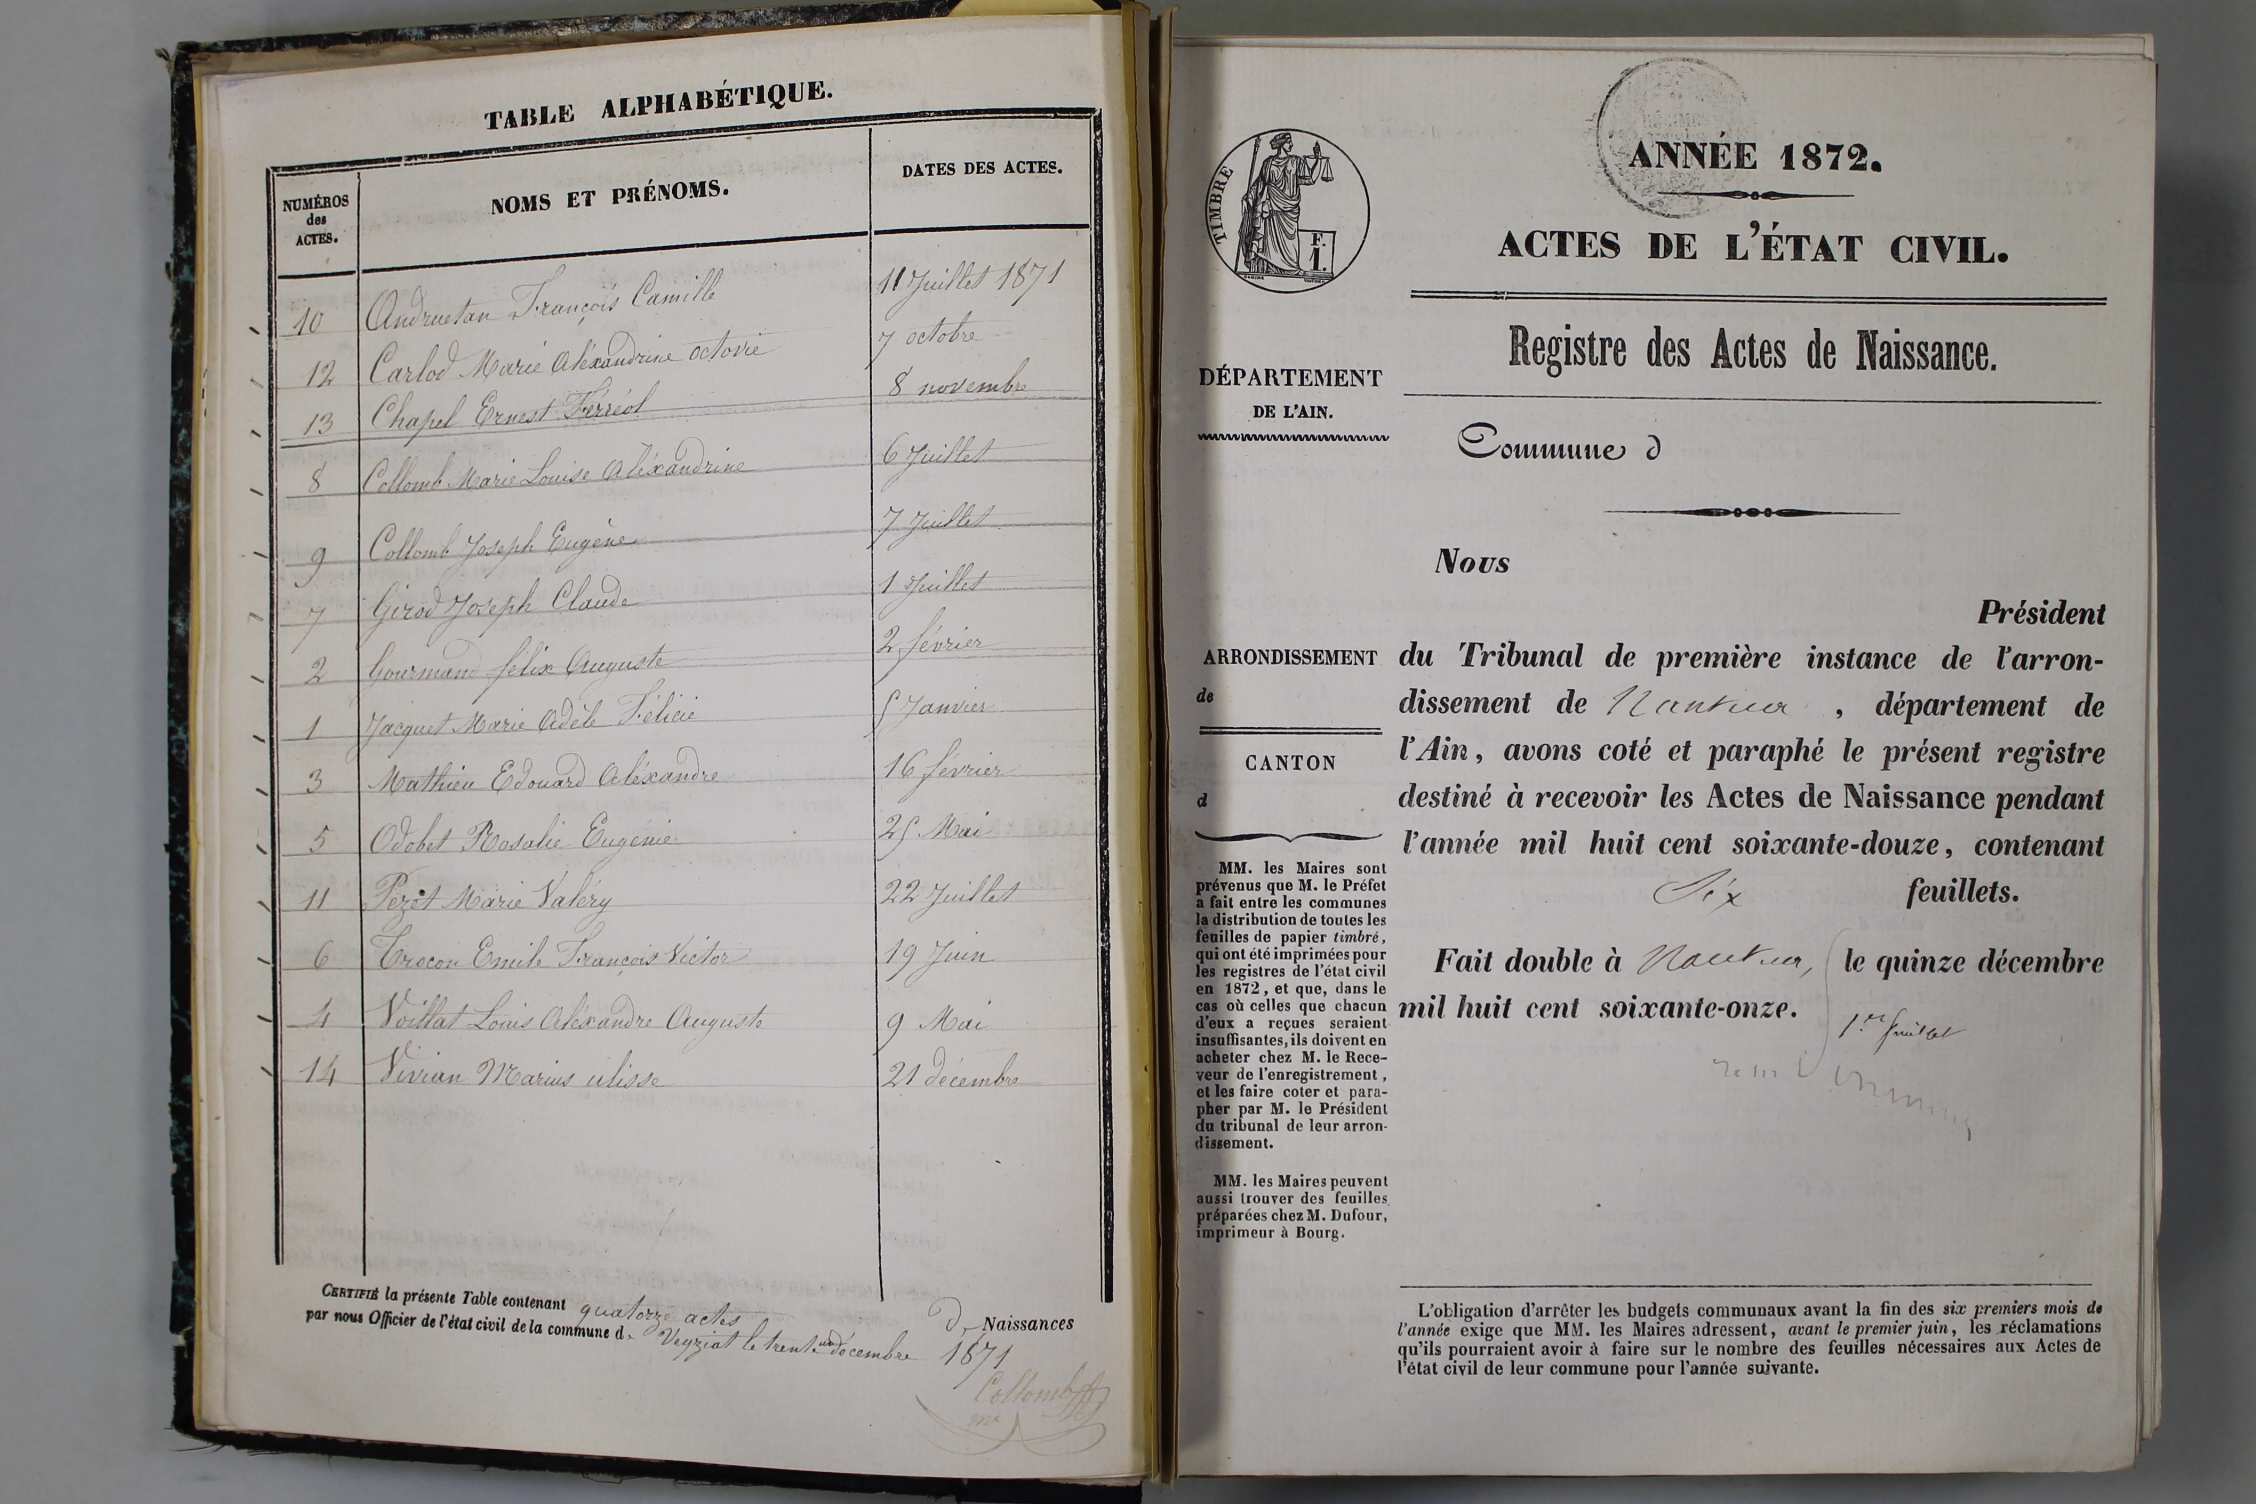 TABLE ALPHABÉTIQUE.
NUMÉROS
des
ACTES.
NOMS ET PRÉNOMS.
DATES DES ACTES.
10 Andruetan François Camille 11 Juillet 1871
12 Carlod Marie Aléxandrine octavie 7 octobre
13 Chapel Ernest Férréol 8 novembre
8 Collomb Marie Louise Aléxandrine 6 Juillet
9 Collomb Joseph Eugène 7 Juillet
7 Girod Joseph Claude 1 Juillet
2 Gourmand félix Auguste 2 février
1 Jacquet Marie Adèle Félicie 5 Janvier
3 Mathieu Edouard Aléxandre 16 février
5 Odobet Rosalie Eugénie 25 Mai
11 Pezet Marie Valéry 22 Juillet
6 Trocon Emile François Victor 19 Juin
4 Voillat Louis Aléxandre Auguste 9 Mai
14 Vivian Marius ulisse 21 décembre
CERTIFIÉ la présente Table contenant quatorze actes de Naissances
par nous Officier de l'état civil de la commune de Veyziat le trente un décembre 1871
Collomb
TIMBRE
F.
1.
ANNÉE 1872.
ACTES DE L'ÉTAT CIVIL.
Registre des Actes de Naissance.
DÉPARTEMENT
DE L'AIN.
Commune d
Nous
Président
ARRONDISSEMENT
de
CANTON
d
du Tribunal de première instance de l'arron-
dissement de Nantua , département de
l'Ain, avons coté et paraphé le présent registre
destiné à recevoir les Actes de Naissance pendant
l'année mil huit cent soixante-douze, contenant
Six feuillets.
Fait double à Nantua, le quinze décembre
mil huit cent soixante-onze.
1.er feuillet
MM. les Maires sont
prévenus que M. le Préfet
a fait entre les communes
la distribution de toutes les
feuilles de papier timbré,
qui ont été imprimées pour
les registres de l'état civil
en 1872, et que, dans le
cas où celles que chacun
d'eux a reçues seraient
insuffisantes, ils doivent en
acheter chez M. le Rece-
veur de l'enregistrement,
et les faire coter et para-
pher par M. le Président
du tribunal de leur arron-
dissement.
MM. les Maires peuvent
aussi trouver des feuilles
préparées chez M. Dufour,
imprimeur à Bourg.
L'obligation d'arrêter les budgets communaux avant la fin des six premiers mois de
l'année exige que MM. les Maires adressent, avant le premier juin, les réclamations
qu'ils pourraient avoir à faire sur le nombre des feuilles nécessaires aux Actes de
l'état civil de leur commune pour l'année suivante.